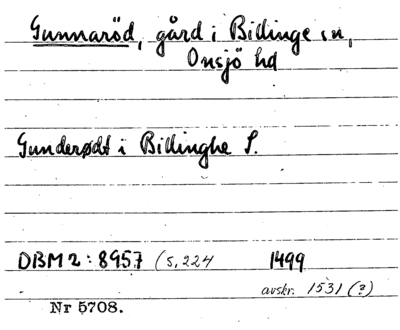 Gunnaröd, gård i Billinge sn,
Onsjö hd
Gunderødt i Billinghe S.
DBM 2: 8957 (s. 224 1499
avskr. 1531 (?)
Nr 5708.